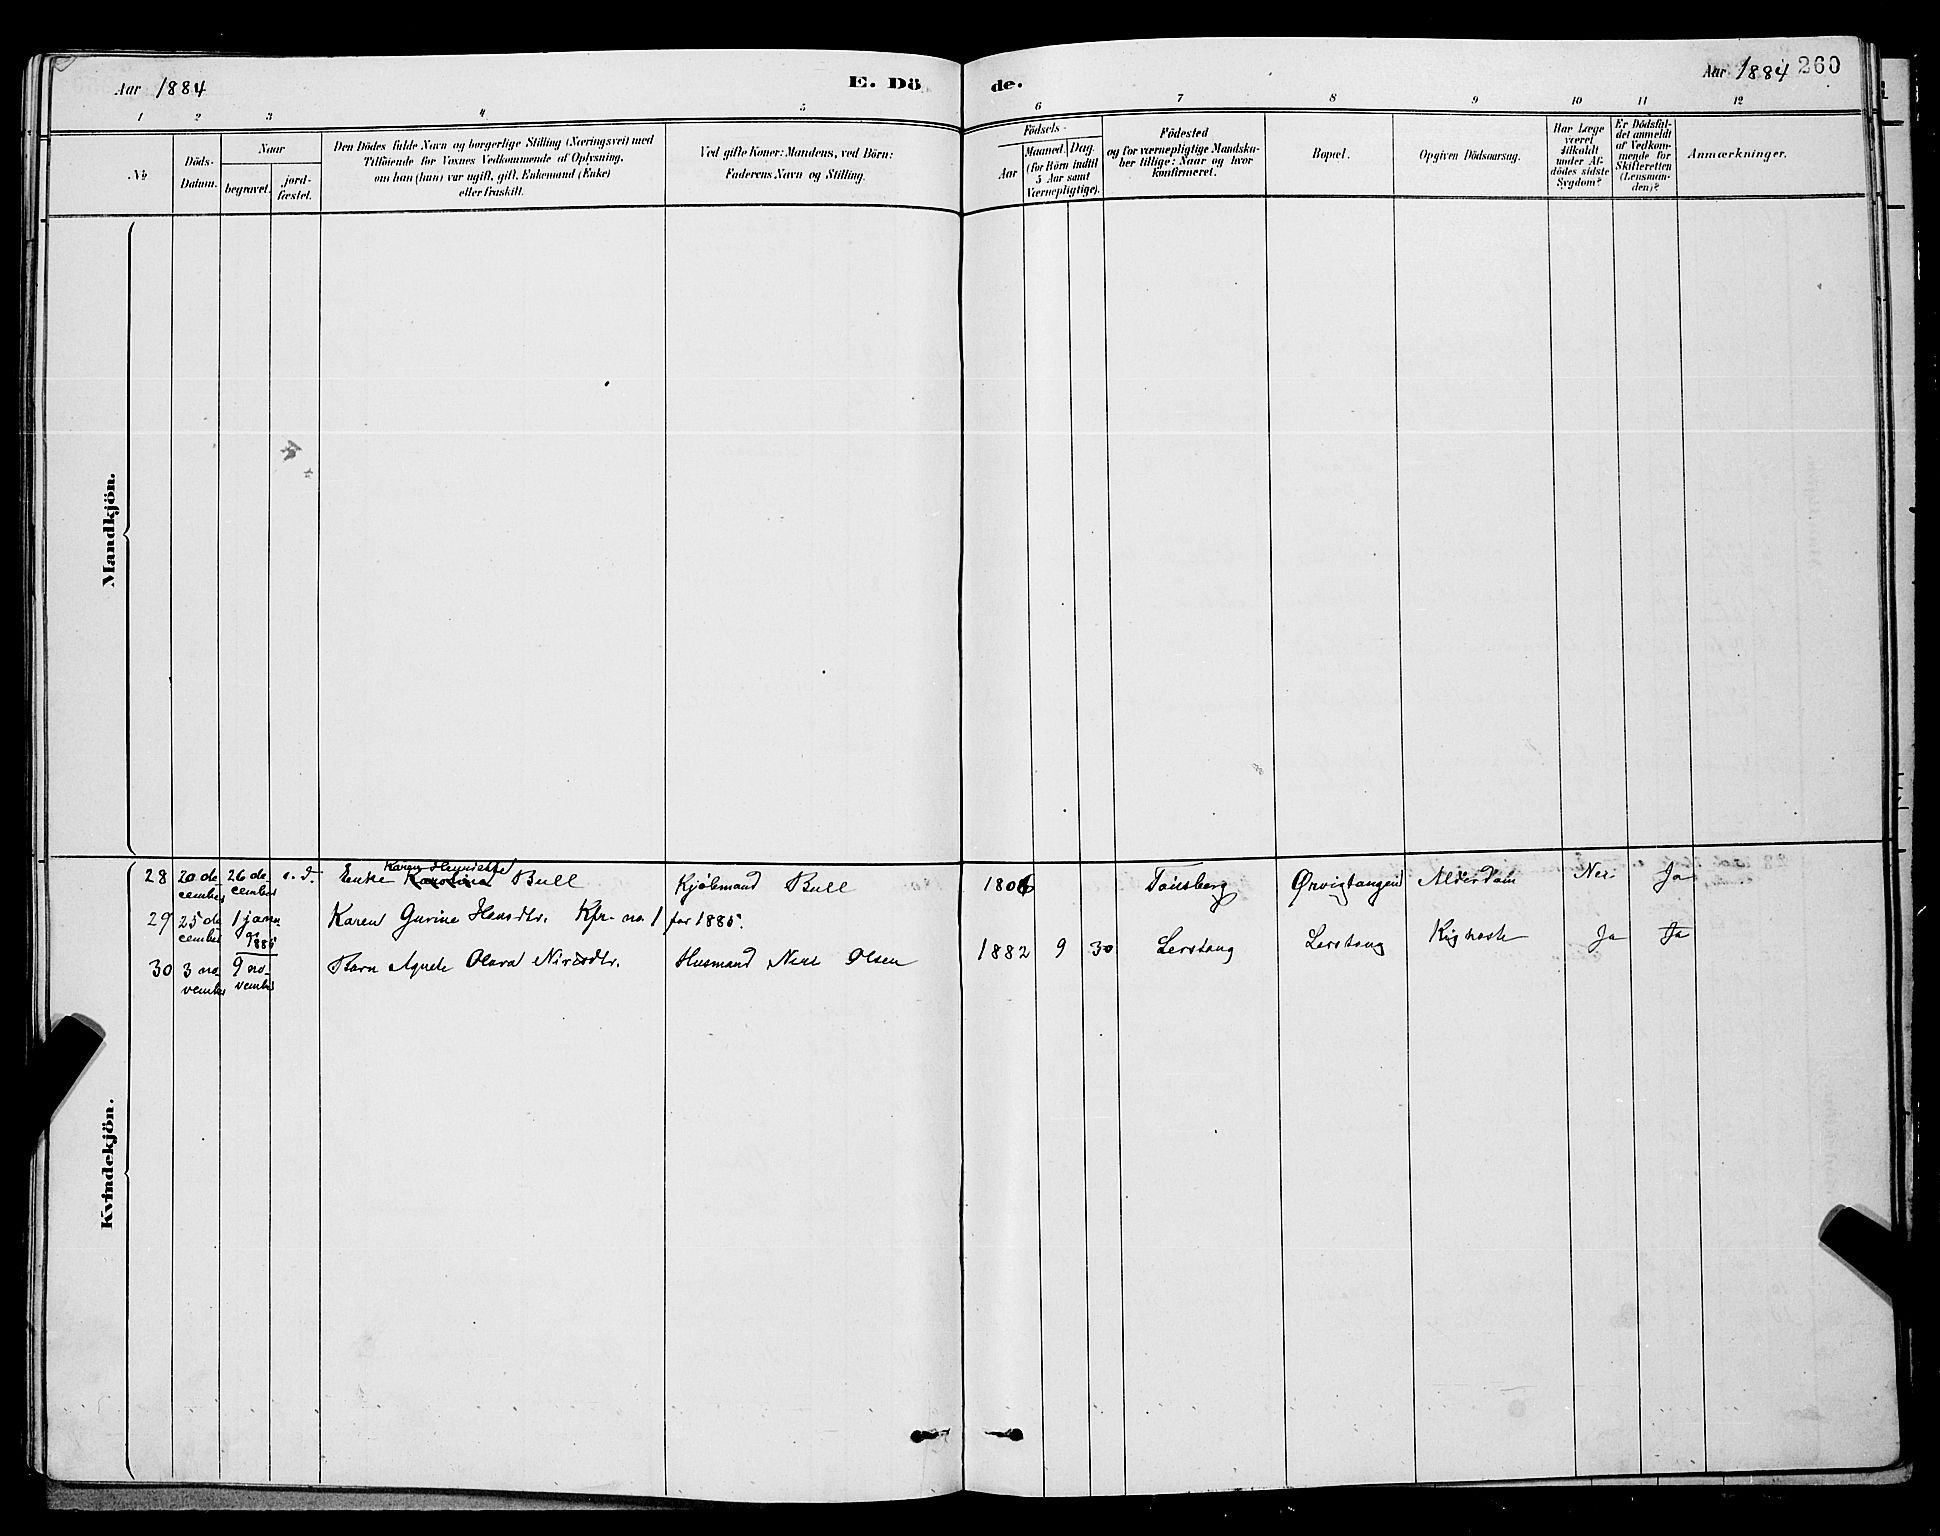 Aar 1884
E. Dö
de.
Aar 1884 260
1 2 3 4 5 6 7 8 9 10 11 12
No
Döds-
Datum.
Naar
begravet.
jord-
fæstet.
Den Dödes fulde Navn og borgerlige Stilling (Næringsvei) med
Tilföiende for Voxnes Vedkommende af Oplysning,
om han (hun) var ugift, gift, Enkemand (Enke)
eller fraskilt.
Ved gifte Koner: Mandens, ved Börn:
Faderens Navn og Stilling.
Födsels-
Aar
Maaned. Dag.
(for Börn indtil
5 Aar samt
Værnepligtige).
Födested
og for værnepligtige Mandska-
ber tillige: Naar og hvor
konfirmeret.
Bopæl.
Opgiven Dödsaarsag.
Har Læge
været
tilkaldt
under Af-
dödes sidste
Sygdom?
Er Dödsfal-
det anmeldt
af Vedkom-
mende for
Skifteretten
(Lensman-
den)?
Anmærkninger.
Mandkjön.
Kvindekjön.
Karen Henriette
28 20 de- 26 de- s. d. Enke Karoline Bull Kjöbmand Bull 1806 Tönsberg Ørvigtangen Alderdom Nei Ja
cember cember
29 25 de- 1 janu- Karen Gurine Hansdtr. Kfr. no. 1 for 1885.
cember
1885
30 3 no- 9 no- Barn Agnete Olava Nirisdtr. Husmand Olsen 1882 9 30 Lerstang Lerstang Kighoste Ja Ja
vember vember